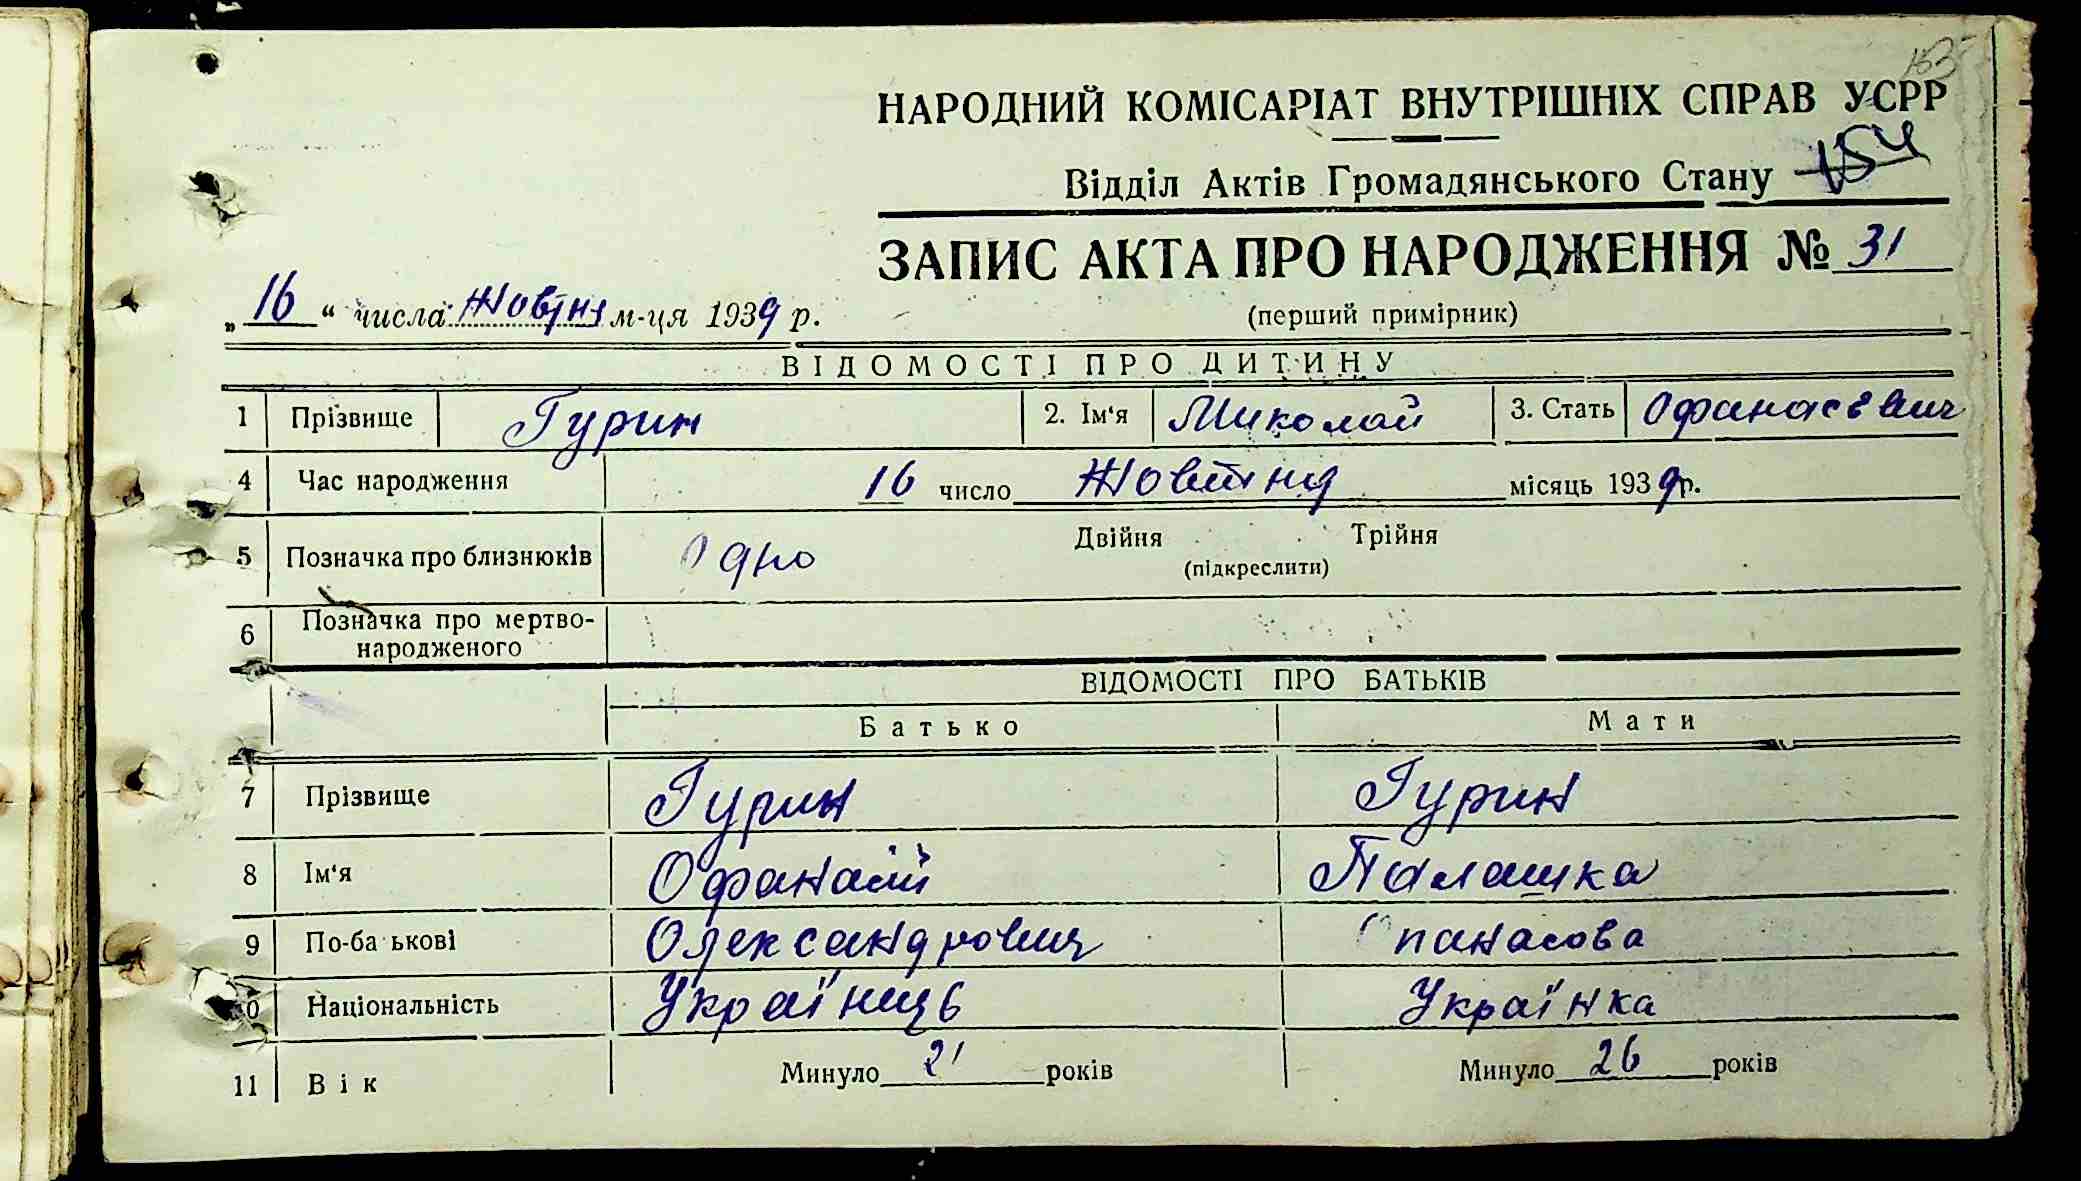 153
НАРОДНИЙ КОМІСАРІАТ ВНУТРІШНІХ СПРАВ УСРР
Відділ Актів Громадянського Стану 154
ЗАПИС АКТА ПРО НАРОДЖЕННЯ № 31
„16“ числа Жовтня м-ця 1939 р.
(перший примірник)
ВІДОМОСТІ ПРО ДИТИНУ
1 Прізвище Гурин 2. Ім‘я Миколай 3. Стать Офанасєвич
4 Час народження 16 число Жовтня місяць 1939р.
5 Позначка про близнюків Одно Двійня Трійня
(підкреслити)
6 Позначка про мертво-
народженого
ВІДОМОСТІ ПРО БАТЬКІВ
Батько Мати
7 Прізвище Гурин Гурин
8 Ім‘я Офанасій Палашка
9 По-батькові Олександрович Опанасова
10 Національність Українць Українка
11 Вік Минуло 21 років Минуло 26 років